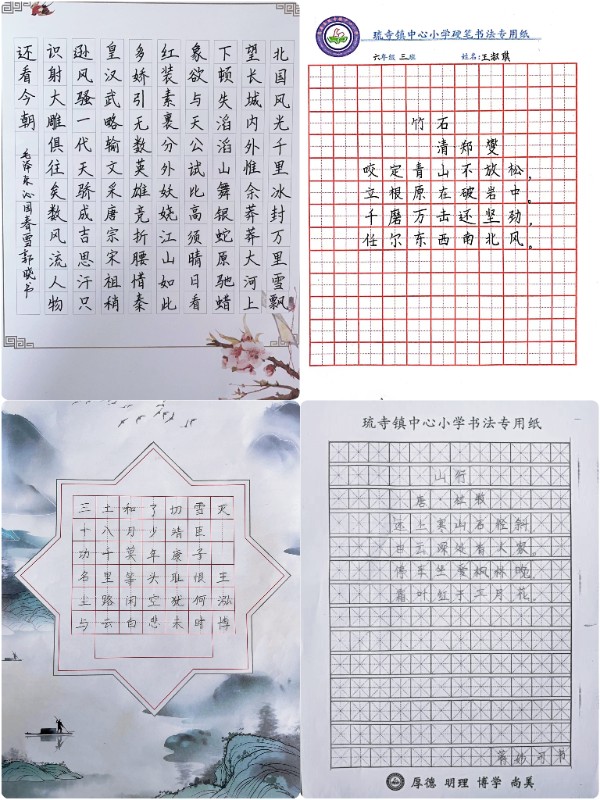 北国风光千里冰封万里雪飘
望长城内外惟余莽莽大河上
下顿失滔滔山舞银蛇原驰蜡
象欲与天公试比高须晴日看
红装素裹分外妖娆江山如此
多娇引无数英雄竞折腰惜秦
皇汉武略输文采唐宗宋祖稍
逊风骚一代天骄成吉思汗只
识射大雕俱往矣数风流人物
还看今朝
毛泽东沁园春雪郭晓书
琉寺镇中心小学硬笔书法专用纸
六年级 三班 姓名:王淑琪
竹石
清郑燮
咬定青山不放松,
立根原在破岩中。
千磨万击还坚劲,
任尔东西南北风。
三十功名尘与
土八千里路云
和月莫等闲白
了少年头空悲
切靖康耻犹未
雪臣子恨何时
灭
王泓博
琉寺镇中心小学书法专用纸
山行
唐·杜牧
远上寒山石径斜
白云深处有人家。
停车坐爱枫林晚,
霜叶红于二月花。
厚德 明理 博学 尚美